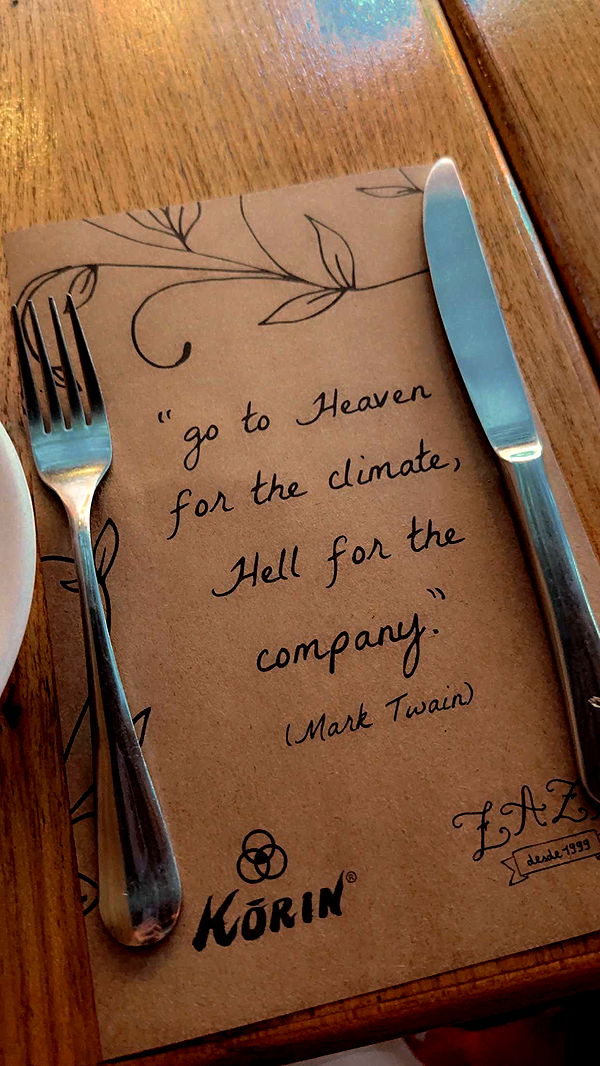 "go to Heaven
for the climate,
Hell for the
company."
(Mark Twain)
ZAZ
desde 1999
KŌRIN®